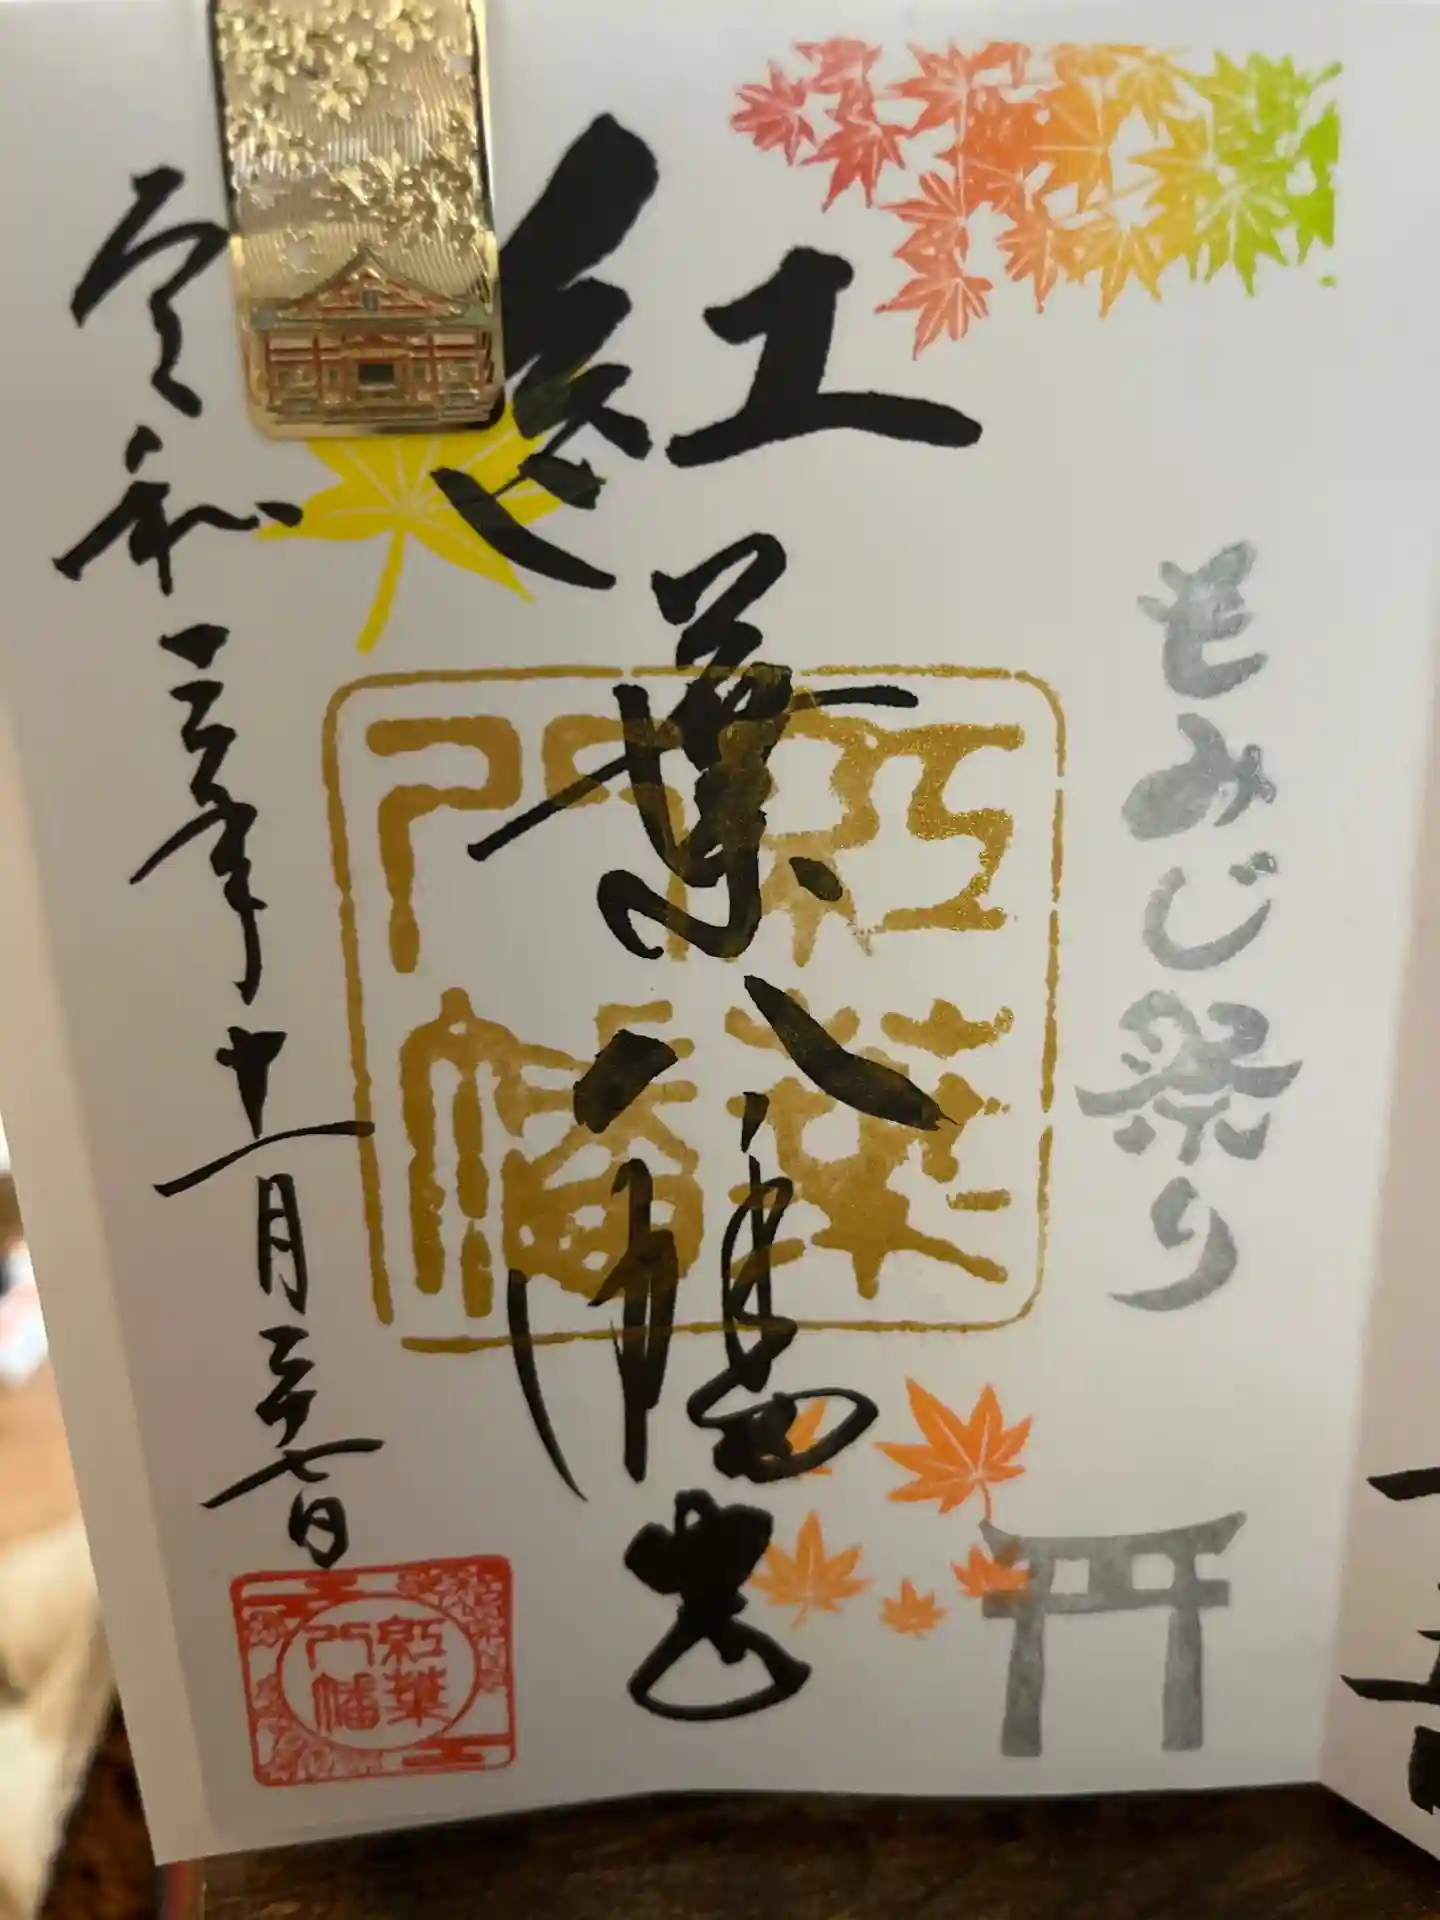 もみじ祭り
紅葉八幡宮
紅葉
八幡
令和三年十一月二十七日
紅葉
八幡